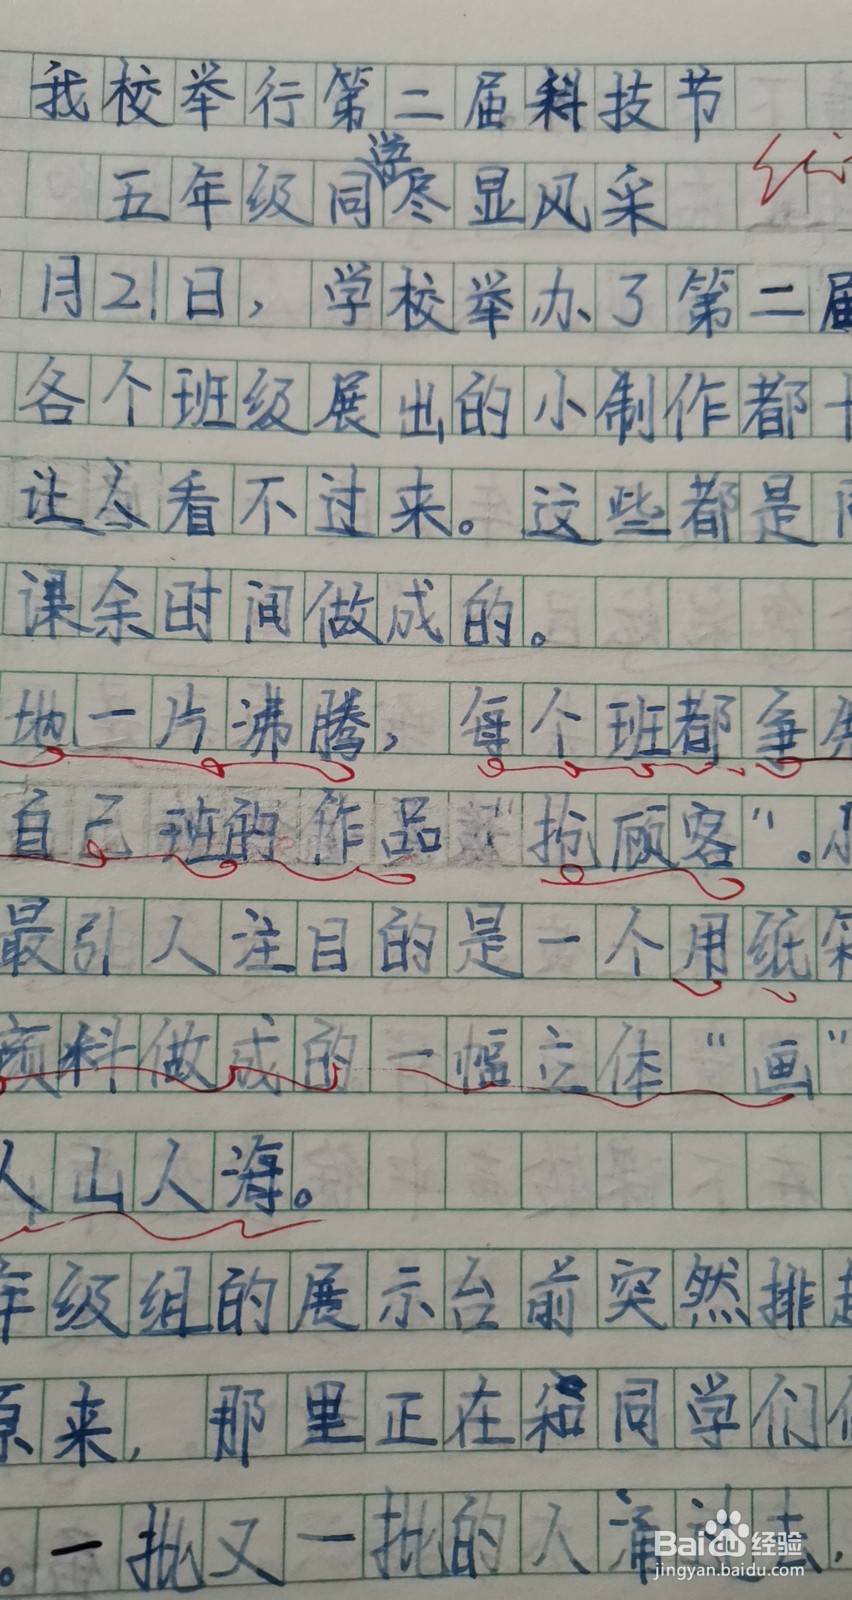 我校举行第二届科技节
五年级同学尽显风采
月21日，学校举办了第二届
各个班级展出的小制作都十
让人看不过来。这些都是同
课余时间做成的。
地一片沸腾，每个班都争先
自己班的作品"抢顾客"。
最引人注目的是一个用纸
颜料做成的一幅立体"画"
人山人海。
年级组的展示台前突然排起
原来，那里正在和同学们
。一批又一批的人涌过去，
Baidu经验
jingyan.baidu.com